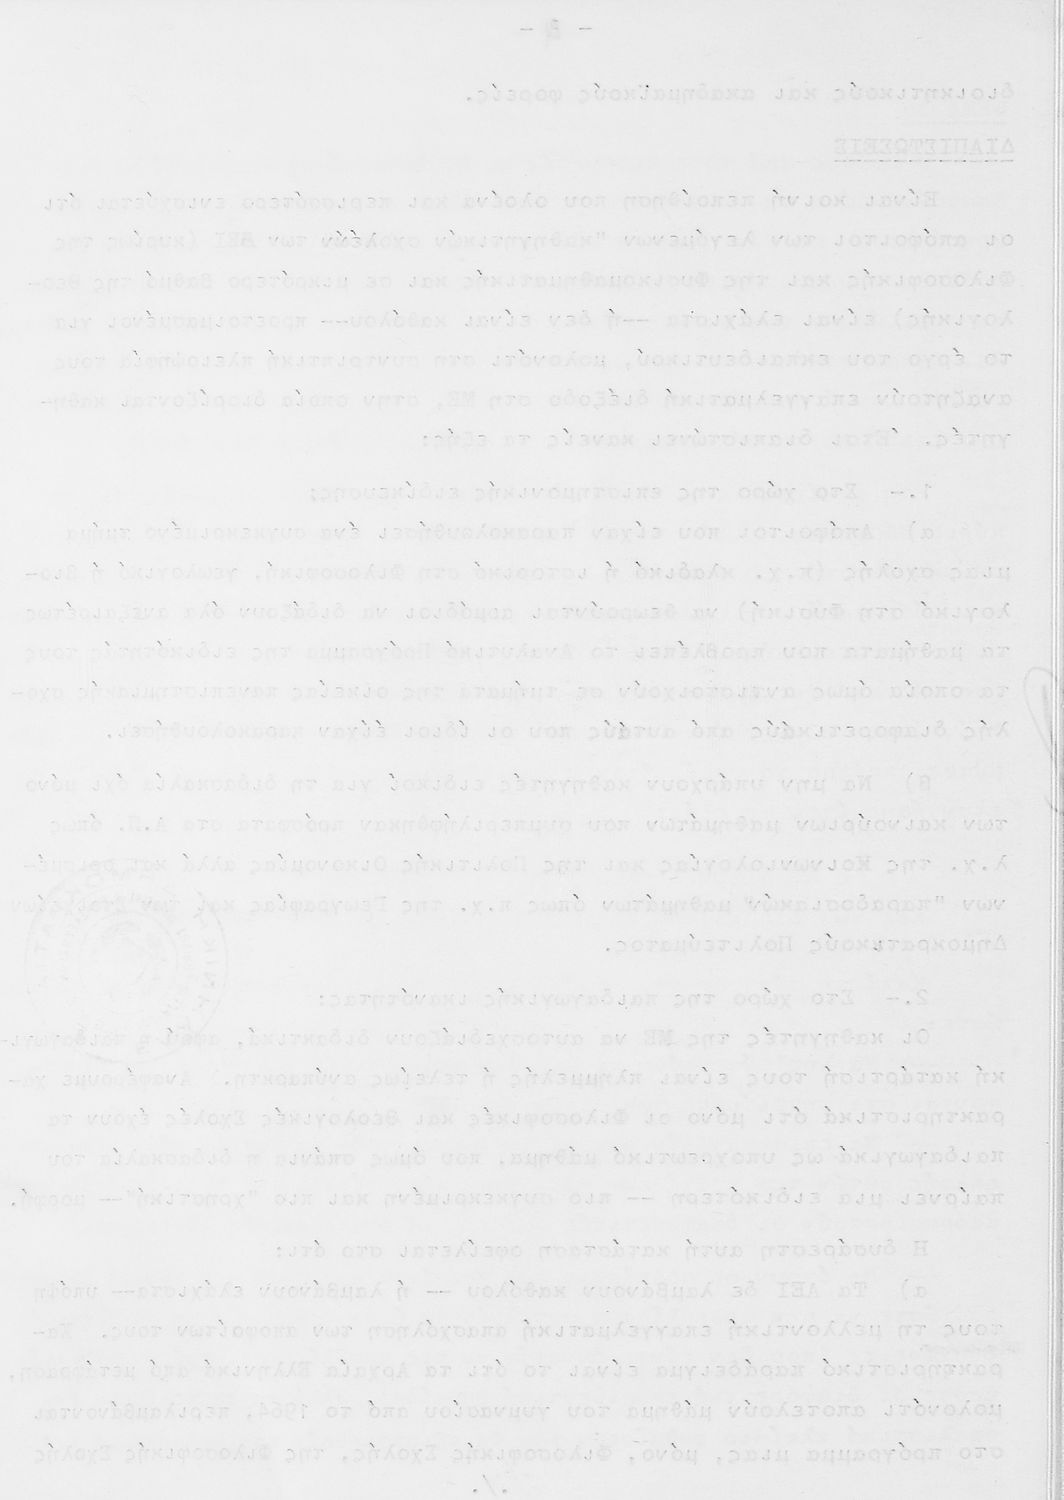 - 2 -
διοικητικούς και ακαδημαϊκούς φορείς.
ΔΙΑΠΙΣΤΩΣΕΙΣ
Είναι κοινή πεποίθηση που ολοένα και περισσότερο ενισχύεται ότι
οι απόφοιτοι των λεγόμενων "καθηγητικών σχολών των ΑΕΙ (κυρίως της
Φιλοσοφικής και της Φυσικομαθηματικής και σε μικρότερο βαθμό της Θεο-
λογικής) είναι ελάχιστα --ή δεν είναι καθόλου-- προετοιμασμένοι για
το έργο του εκπαιδευτικού, μολονότι στη συντριπτική πλειοψηφία τους
αναζητούν επαγγελματική διέξοδο στη ΜΕ, στην οποία διορίζονται καθη-
γητές. Έτσι διαπιστώνει κανείς τα εξής:
1.- Στο χώρο της επιστημονικής ειδίκευσης;
α) Απόφοιτοι που είχαν παρακολουθήσει ένα συγκεκριμένο τμήμα
μιας σχολής (π.χ. κλαδικό ή ιστορικό στη Φιλοσοφική, γεωλογικό ή βιο-
λογικό στη Φυσική) να θεωρούνται αρμόδιοι να διδάξουν όλα ανεξαιρέτως
τα μαθήματα που προβλέπει το Αναλυτικό Πρόγραμμα της ειδικότητάς τους
τα οποία όμως αντιστοιχούν σε τμήματα της οικείας πανεπιστημιακής σχο-
λής διαφορετικούς από αυτούς που οι ίδιοι είχαν παρακολουθήσει.
β) Να μην υπάρχουν καθηγητές ειδικοί για τη διδασκαλία όχι μόνο
των καινούριων μαθημάτων που συμπεριλήφθηκαν πρόσφατα στα Α.Π. όπως
λ.χ. της Κοινωνιολογίας και της Πολιτικής Οικονομίας αλλά και ορισμέ-
νων "παραδοσιακών" μαθημάτων όπως π.χ. της Γεωγραφίας και των Στοιχείων
Δημοκρατικούς Πολιτεύματος.
2.- Στο χώρο της παιδαγωγικής ικανότητας:
Οι καθηγητές της ΜΕ να αυτοσχεδιάζουν διδακτικά, αφού η παιδαγωγι-
κή κατάρτισή τους είναι πλημμελής ή τελείως ανύπαρκτη. Αναφέρουμε χα-
ρακτηριστικά ότι μόνο οι Φιλοσοφικές και Θεολογικές Σχολές έχουν τα
παιδαγωγικά ως υποχρεωτικό μάθημα, που όμως σπάνια η διδασκαλία του
παίρνει μια ειδικότερη -- πιο συγκεκριμένη και πιο "χρηστική"-- μορφή.
Η δυσάρεστη αυτή κατάσταση οφείλεται στο ότι:
α) Τα ΑΕΙ δε λαμβάνουν καθόλου -- ή λαμβάνουν ελάχιστα-- υπόψη
τους τη μελλοντική επαγγελματική απασχόληση των αποφοίτων τους. Χα-
ρακτηριστικό παράδειγμα είναι το ότι τα Αρχαία Ελληνικά από μετάφραση,
μολονότι αποτελούν μάθημα του γυμνασίου από το 1964, περιλαμβάνονται
στο πρόγραμμα μιας, μόνο, Φιλοσοφικής Σχολής, της Φιλοσοφικής Σχολής
./.